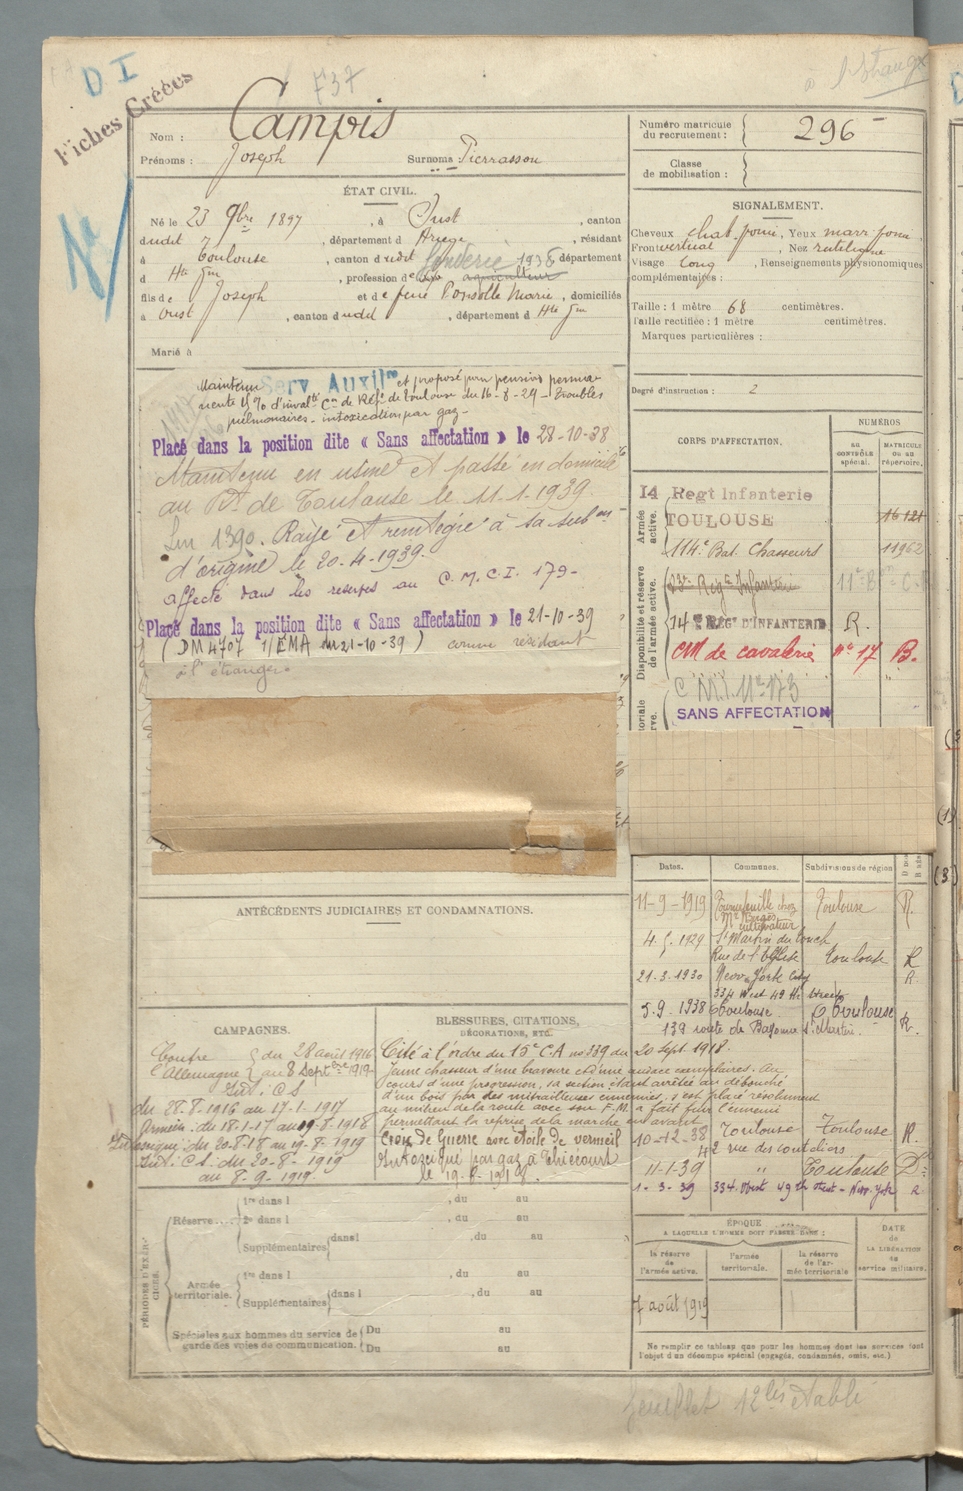 D I
Fiches Créées
F37
à l'étranger
Nom : Campis
Prénoms : Joseph Surnoms : Pierrasson
Numéro matricule du recrutement : 296
Classe de mobilisation :
ÉTAT CIVIL.
Né le 23 9bre 1897, à Oust, canton
dudit, département d Ariège, résidant
à Toulouse, canton dudit, 1938 département
d Hte Gne, profession de agriculteur
fils de Joseph et de feue Ponsolle Marie, domiciliés
à Oust, canton dudit, département d Hte Gne
Marié à
SIGNALEMENT.
Cheveux chat. , Yeux marr. ,
Front vertical, Nez rectiligne
Visage long, Renseignements physionomiques
complémentaires :
Taille : 1 mètre 68 centimètres.
Taille rectifiée : 1 mètre centimètres.
Marques particulières :
Degré d'instruction : 2
Maintenu Serv. Auxilre et proposé pour pension perma-
nente 15 % d'invalté Con de Réfme de Toulouse du 16-8-29 - Troubles
pulmonaires - intoxication par gaz -
Placé dans la position dite « Sans affectation » le 28-10-38
Maintenu en usine et passé en domicile
au Bau de Toulouse le 11-1-1939.
Rayé et réintégré à sa subon
d'origine le 20-4-1939.
affecté dans les réserves au C.M.C.I. 179-
Placé dans la position dite « Sans affectation » le 21-10-39
(DM 4707 1/EMA du 21-10-39) comme résidant
à l'étranger.
CORPS D'AFFECTATION.
NUMÉROS
AU CONTRÔLE spécial.
MATRICULE OU AU répertoire.
Armée active.
14 Regt Infanterie
TOULOUSE 16121
114e Bat. Chasseurs 11962
Disponibilité et réserve de l'armée active.
23e Régt Infanterie
14e REGT D'INFANTERIE R.
CM de cavalerie n° 17 B.
C.M.I. N° 173
SANS AFFECTATION
Dates. Communes. Subdivisions de région
11-9-1919 Tournefeuille chez Mr Bergès cultivateur Toulouse R.
4.5.1929 St Martin du Touch Rue de l'Eglise Toulouse R
21-3-1930 New-York City 334 West 49 th Street R.
5.9.1938 Toulouse 139 route de Bayonne St Martin. Toulouse R.
10-12-38 Toulouse 42 rue des couteliers Toulouse R.
11-1-39 " Toulouse D.
1-3-39 334. West 49 th Street - New-York R.
ANTÉCÉDENTS JUDICIAIRES ET CONDAMNATIONS.
CAMPAGNES.
Contre l'Allemagne du 28 août 1916 au 8 Septbre 1919
Int : C S
du 28-8-1916 au 17-1-1917
Armées : du 18-1-17 au 19-8-1918
du 20-8-18 au 19-8-1919
Int : C S. du 20-8-1919
au 8-9-1919.
BLESSURES, CITATIONS,
DÉCORATIONS, ETC.
Cité à l'ordre du 15e C.A no 339 du 20 Sept 1918.
Jeune chasseur d'une bravoure et d'une audace exemplaires. Au
cours d'une progression, sa section étant arrêtée au débouché
d'un bois par des mitrailleuses ennemies, s'est placé résolument
au milieu de la route avec son F.M. a fait fuir l'ennemi
permettant la reprise de la marche en avant
Croix de Guerre avec étoile de vermeil
Intoxiqué par gaz à Thiécourt
le 19-8-1918.
PÉRIODES D'EXERCICES.
Réserve....
1re dans l , du au
2e dans l , du au
Supplémentaires dans l , du au
Armée territoriale.
1re dans l , du au
Supplémentaires dans l , du au
Spéciales aux hommes du service de garde des voies de communication.
Du au
Du au
ÉPOQUE
A LAQUELLE L'HOMME DOIT PASSER DANS :
la réserve de l'armée active.
l'armée territoriale.
la réserve de l'armée territoriale
DATE DE LA LIBÉRATION du service militaire.
7 août 1919
Ne remplir ce tableau que pour les hommes dont les services font
l'objet d'un décompte spécial (engagés, condamnés, omis, etc.)
feuillet 12 bis établi